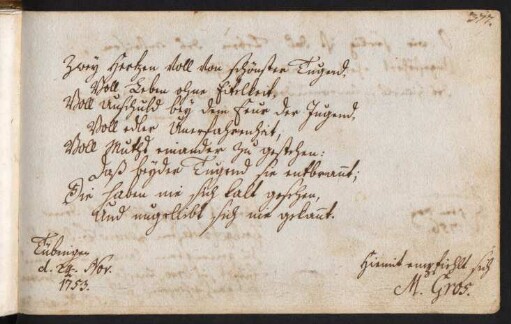 377.
Zwey Hertzen voll von schönster Tugend.
Voll Leben ohne Eitelkeit,
Voll Unschuld bey dem Feur der Jugend,
Voll edler Unerfahrenheit,
Voll Muths einander zu gestehen:
Daß beyder Tugend sie entbrannt;
Die haben nie sich kalt gesehen,
Und ungeliebt sich nie gekannt.
Tübingen
d. 24. Nov.
1753.
Hiemit empfiehlt sich
M. Gros.